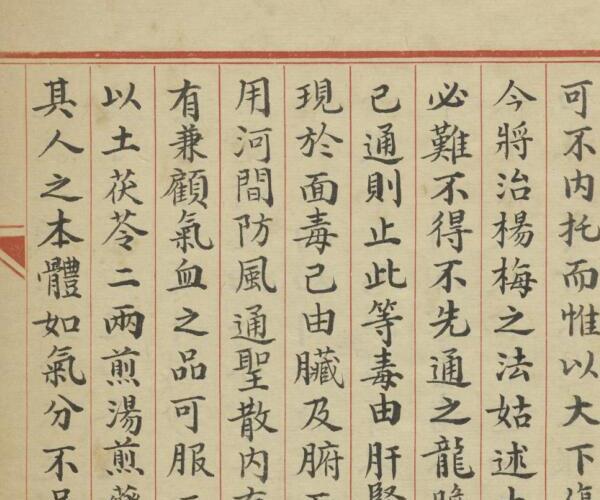 可不内托而惟以大下
今將治楊梅之法姑述
必難不得不先通之龍
已通則止此等毒由肝
現於面毒已由臟及腑
用河間防風通聖散内
有兼顧氣血之品可服
以土茯苓二兩煎湯煎
其人之本體如氣分不